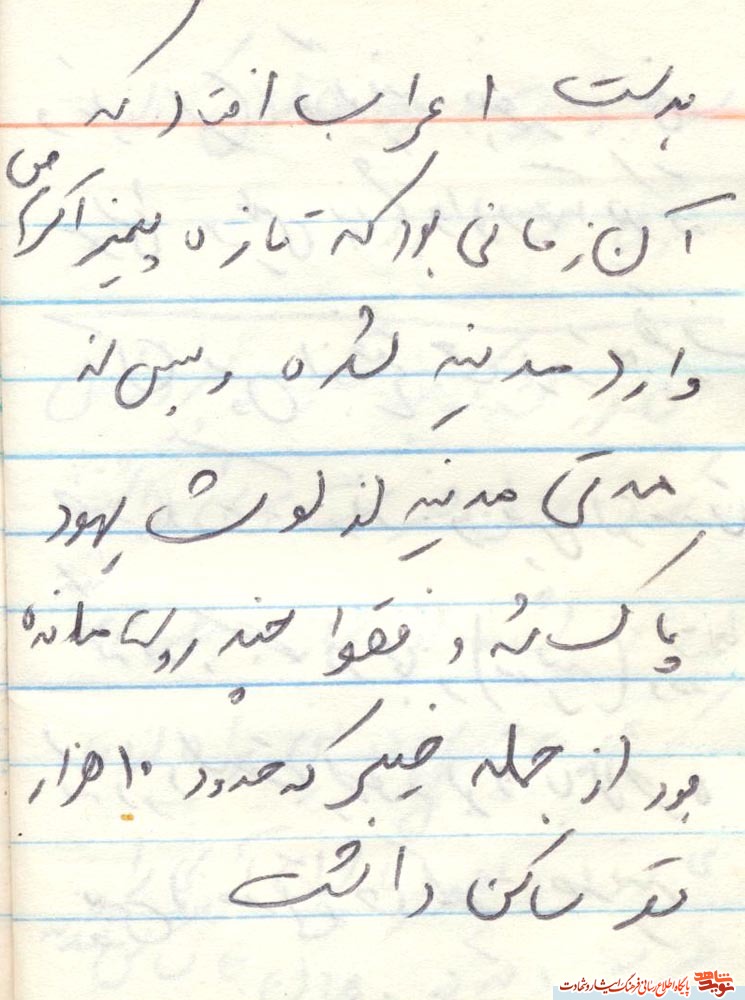 بدست اعراب افتاد که
آن زمانی بود که تازه پیغمبر اکرم ص
وارد مدینه شده و پس از
مدتی مدینه از لوث یهود
پاک شده و فقط چند روستا مانده
بود از جمله خیبر که حدود ۱۰ هزار
نفر ساکن داشت
نوید شاهد پایگاه اطلاع رسانی فرهنگ ایثار و شهادت